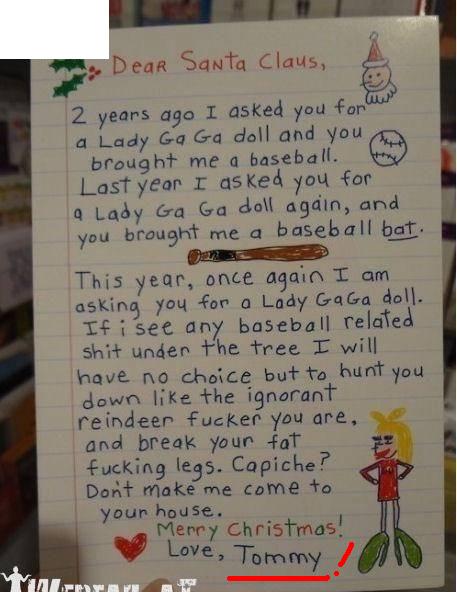 Dear Santa Claus,
2 years ago I asked you for
a Lady Ga Ga doll and you
brought me a baseball.
Last year I asked you for
a Lady Ga Ga doll again, and
you brought me a baseball bat.
This year, once again I am
asking you for a Lady GaGa doll.
If i see any baseball related
shit under the tree I will
have no choice but to hunt you
down like the ignorant
reindeer fucker you are,
and break your fat
fucking legs. Capiche?
Don't make me come to
your house.
Merry Christmas!
Love, Tommy